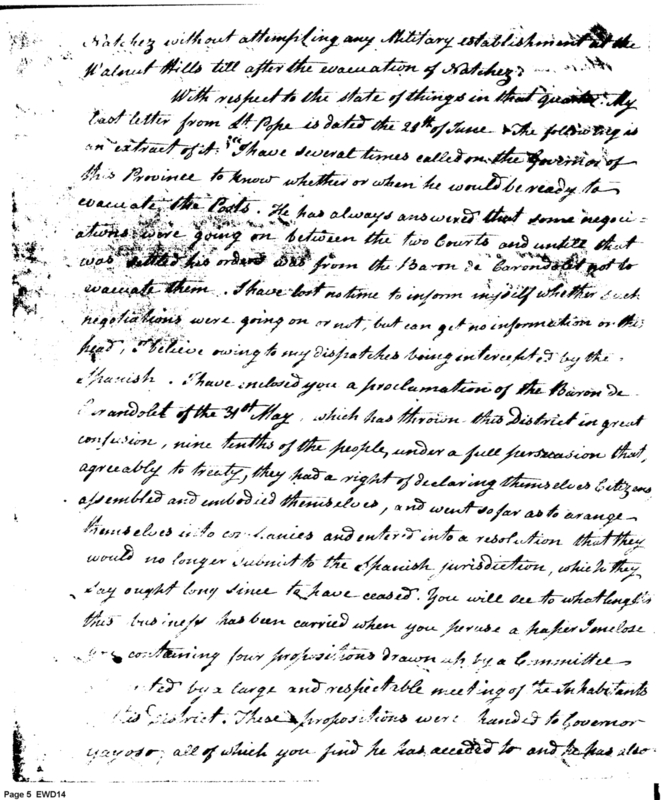 Natchez without attempting any Military establishment at the
Walnut Hills till after the evacuation of Natchez.
With respect to the state of things in that quarter. My
last letter from Lt. Pope is dated the 28th of June. The following is
an extract of it. "I have several times called on the Governor of
this Province to know whether or when he would be ready to
evacuate the Posts. He has always answered that some negoci-
ations were going on between the two Courts and untill that
was settled his orders was from the Baron de Carondolet not to
evacuate them. I have lost no time to inform myself whether such
negotiations were going on or not, but can get no information on this
head, I believe owing to my dispatches being intercepted by the
Spanish. I have inclosed you a proclamation of the Baron de
Carandolet of the 31st May, which has thrown this District in great
confusion, nine tenths of the people, under a full persuasion that,
agreeably to treaty, they had a right of declaring themselves Citizens
assembled and embodied themselves, and went so far as to arange
themselves into companies and entered into a resolution that they
would no longer submit to the Spanish jurisdiction, which they
say ought long since to have ceased. You will see to what lengths
this business has been carried when you peruse a paper I enclose
you containing four propositions drawn up by a Committee
by a large and respectable meeting of the Inhabitants
District. These propositions were handed to Governor
Gayoso, all of which you find he has acceded to and he has also
Page 5 EWD14